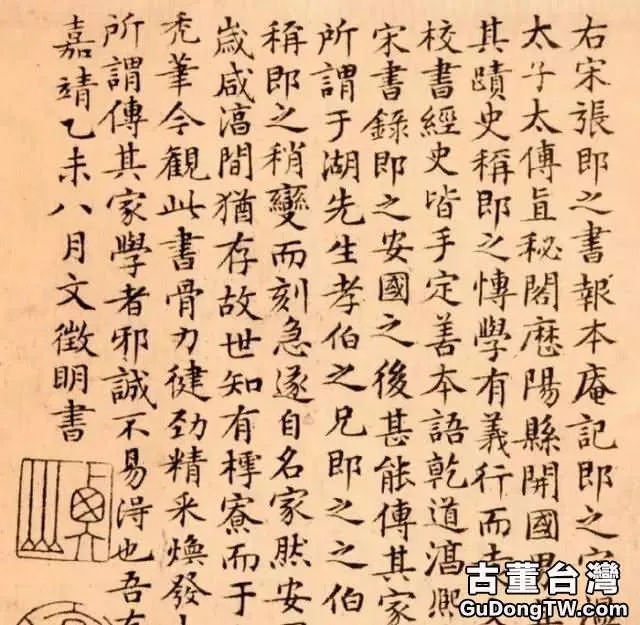 右宋張即之書報本庵記即之字溫
太子太傅直秘閣歷陽縣開國男
其蹟史稱即之博學有義行而
校書經史皆手定善本語乾道淳熙
宋書錄即之安國之後甚能傳其家
所謂于湖先生孝伯之兄即之之伯
稱即之稍變而刻急遂自名家然安
歲咸淳間猶存故世知有樗寮而于
禿筆今觀此書骨力健勁精采煥發
所謂傳其家學者邪誠不易得也吾
嘉靖乙未八月文徵明書
古董台灣
GuDongTW.com